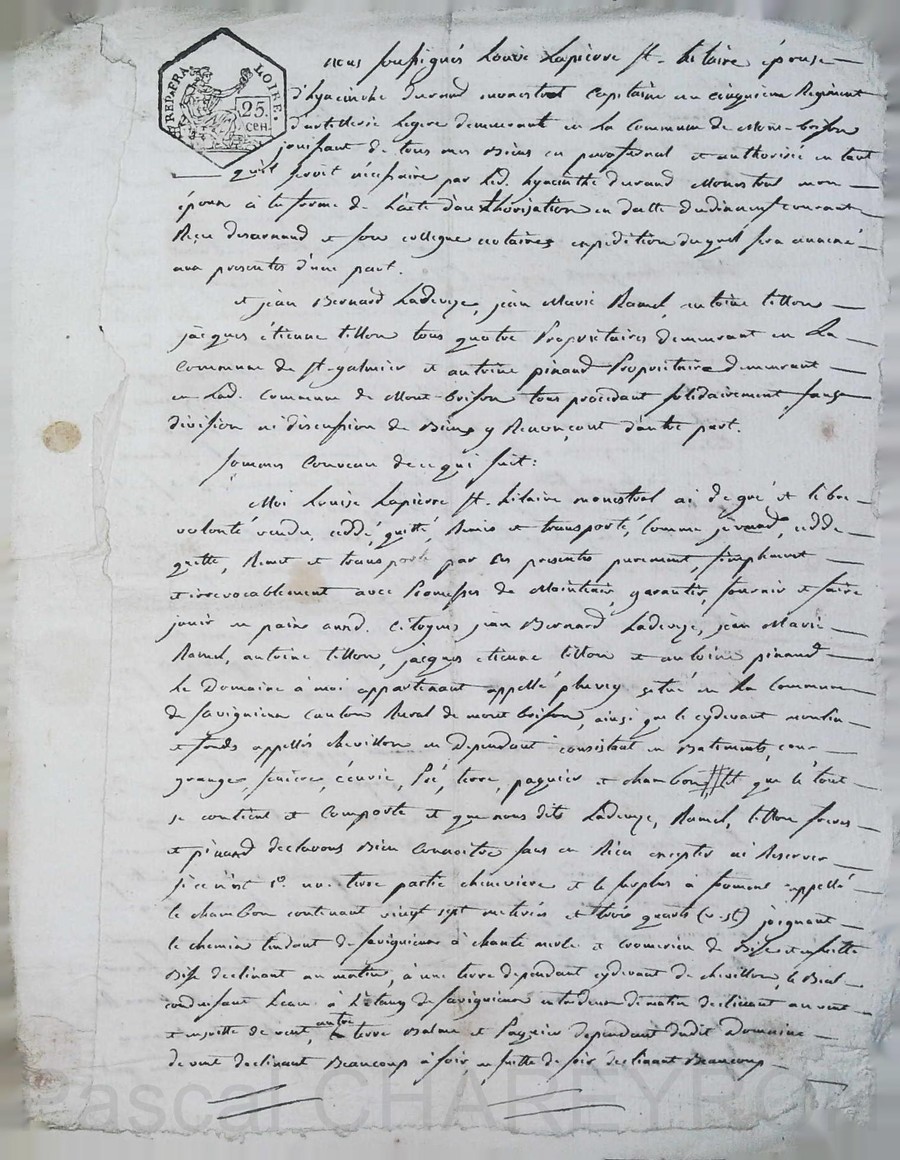 REP. FRA. LOIRE.
25. CEN.
nous soussignés Louise Lapierre St. hilaire épouse
d'hyacinthe Durand monestrol Capitaine au cinquieme Regiment
d'artillerie legere demeurant en La Commune de Mont-brison
jouissant de tous mes Biens en parafernal et authorisée en tant
qu'il seroit nécessaire par led. hyacinthe durand Monestrol mon
époux à la forme de L'acte d'authorisation en datte du dixneuf courant
Reçu et son collegue notaires expédition duquel sera annexé
aux presentes d'une part.
et jean Bernard Ladeveze, jean Marie Ramel, antoine tillon
jacques étienne tillon tous quatre Propriétaires demeurant en La
Commune de St-galmier et antoine pinand Propriétaire demeurant
en Lad. Commune de Mont-brison tous procédant solidairement sans
division ni discussion de Biens y Renonçant d'autre part.
sommes Convenu de ce qui suit:
Moi Louise Lapierre St. hilaire monestrol ai de gré et libre
volonté vendu, céddé, quitté, Remis et transporté, Comme je vend, cedde
quitte, Remet et transporte par les presentes purement, simplement
et irrevocablement avec Promesses de Maintenir, garantir, fournir et faire
jouir en paix auxd. Citoyens jean Bernard Ladeveze, jean Marie
Ramel, antoine tillon, jacques etienne tillon et antoine pinand
Le Domaine à moi appartenant appellé situé en La Commune
de savignieux Canton Rural de mont brison, ainsi que le cydevant moulin
et fonds appellés chevillon en Dependant consistant en Batiments, cour
grange, feniere, écurie, Pré, terre, paquier et chambon tel que le tout
se contient et Comporte et que nous dits Ladeveze, Ramel, tillon freres
et pinand declarons Bien Connoitre sans en Rien excepter ni Reserver
si ce n'est 1°. une terre partie cheneviere et le surplus à froment appellé
le chambon contenant vingt sept meterées et trois quarts (v.st) joignant
le chemin tendant de savignieux à chante merle et de Bise et ensuitte
Bise declinant au matin, à une terre dependant cydevant de chevillon, le Bial
conduisant L'eau à L'étang de savignieux entredeux de matin declinant au vent
et ensuitte de vent, autre terre Balme et Paquier dependant dudit Domaine
de vent declinant Beaucoup à soir, ensuitte de soir declinant Beaucoup
Pascal CHAREYRON